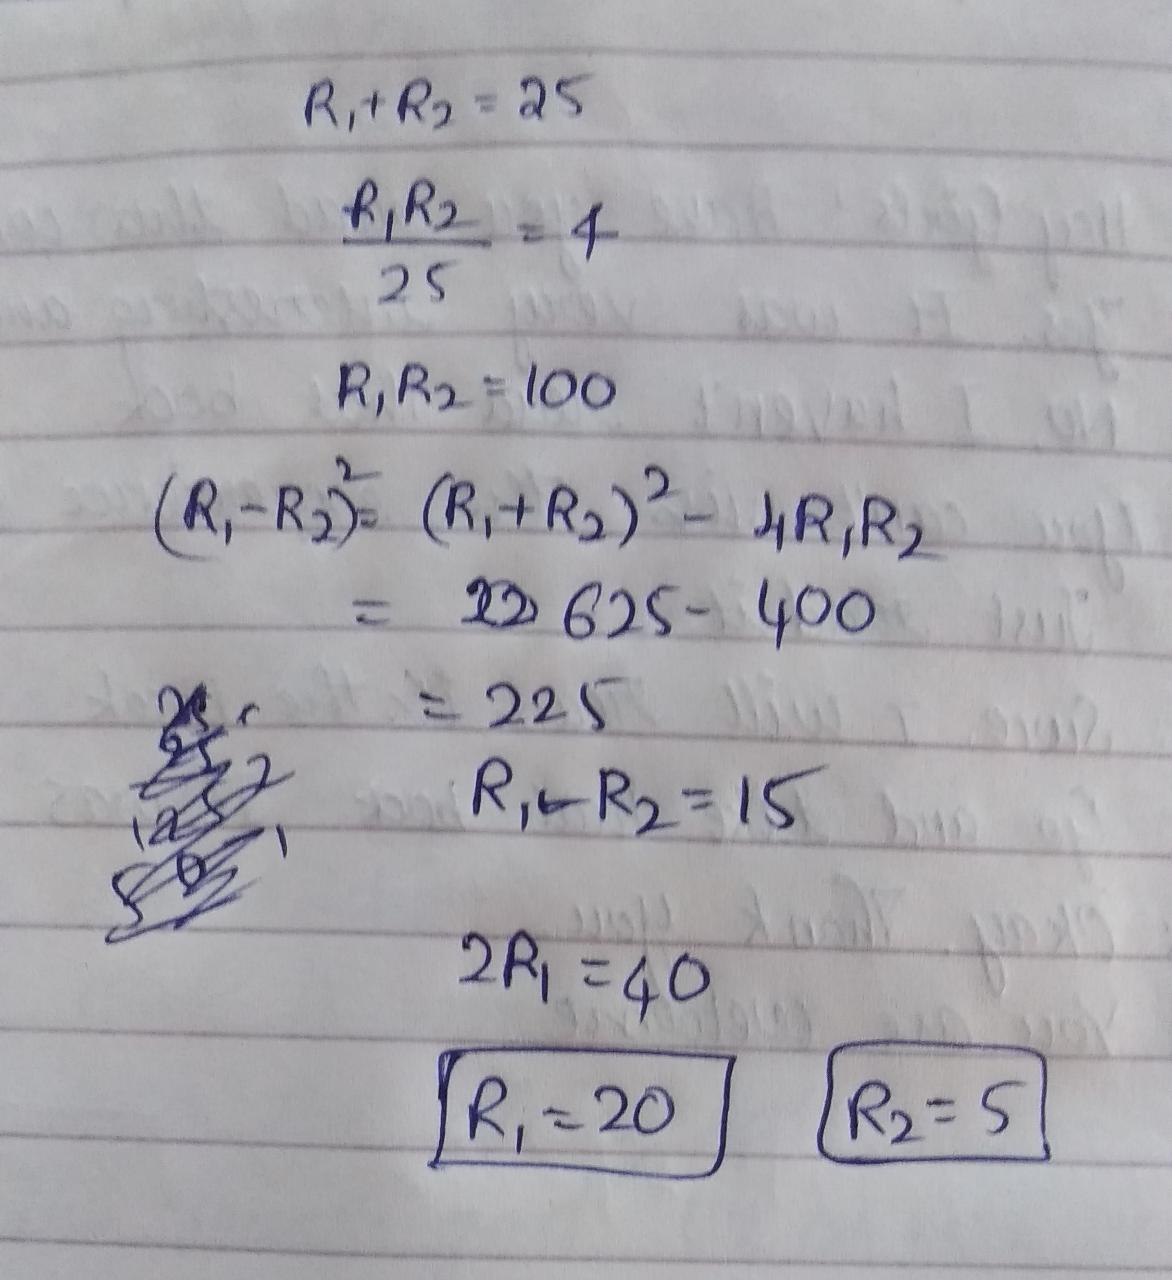 R₁+R₂ = 25
R₁R₂/25 = 4
R₁R₂ = 100
(R₁-R₂)² = (R₁+R₂)² - 4R₁R₂
= 625 - 400
= 225
R₁-R₂ = 15
2R₁ = 40
R₁ = 20 R₂ = 5